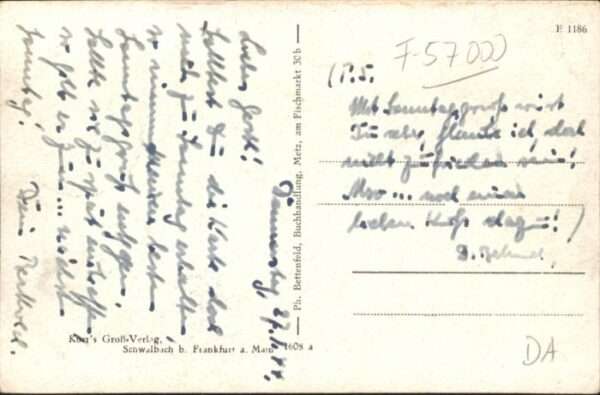 Donnerstag, 27.1.44.
Liebes Gerdl!
Solltest Du die Karte doch
noch zu Sonntag erhalten
so nimm meinen besten
Sonntagsgruß entgegen,
sollte sie zu spät eintreffen
so gilt er zum ... nächsten
Sonntag!
Dein
(P.S.
Mit Sonntagsgruß wirst
Du sehr, glaube ich, doch
nicht zufrieden sein!
Also ... noch einen
lieben Kuß dazu!)
D.
F-57000
DA
E 1186
Ph. Bettenfeld, Buchhandlung, Metz, am Fischmarkt 30b
Kurt's Groß-Verlag,
Schwalbach b. Frankfurt a. Main 1608 a